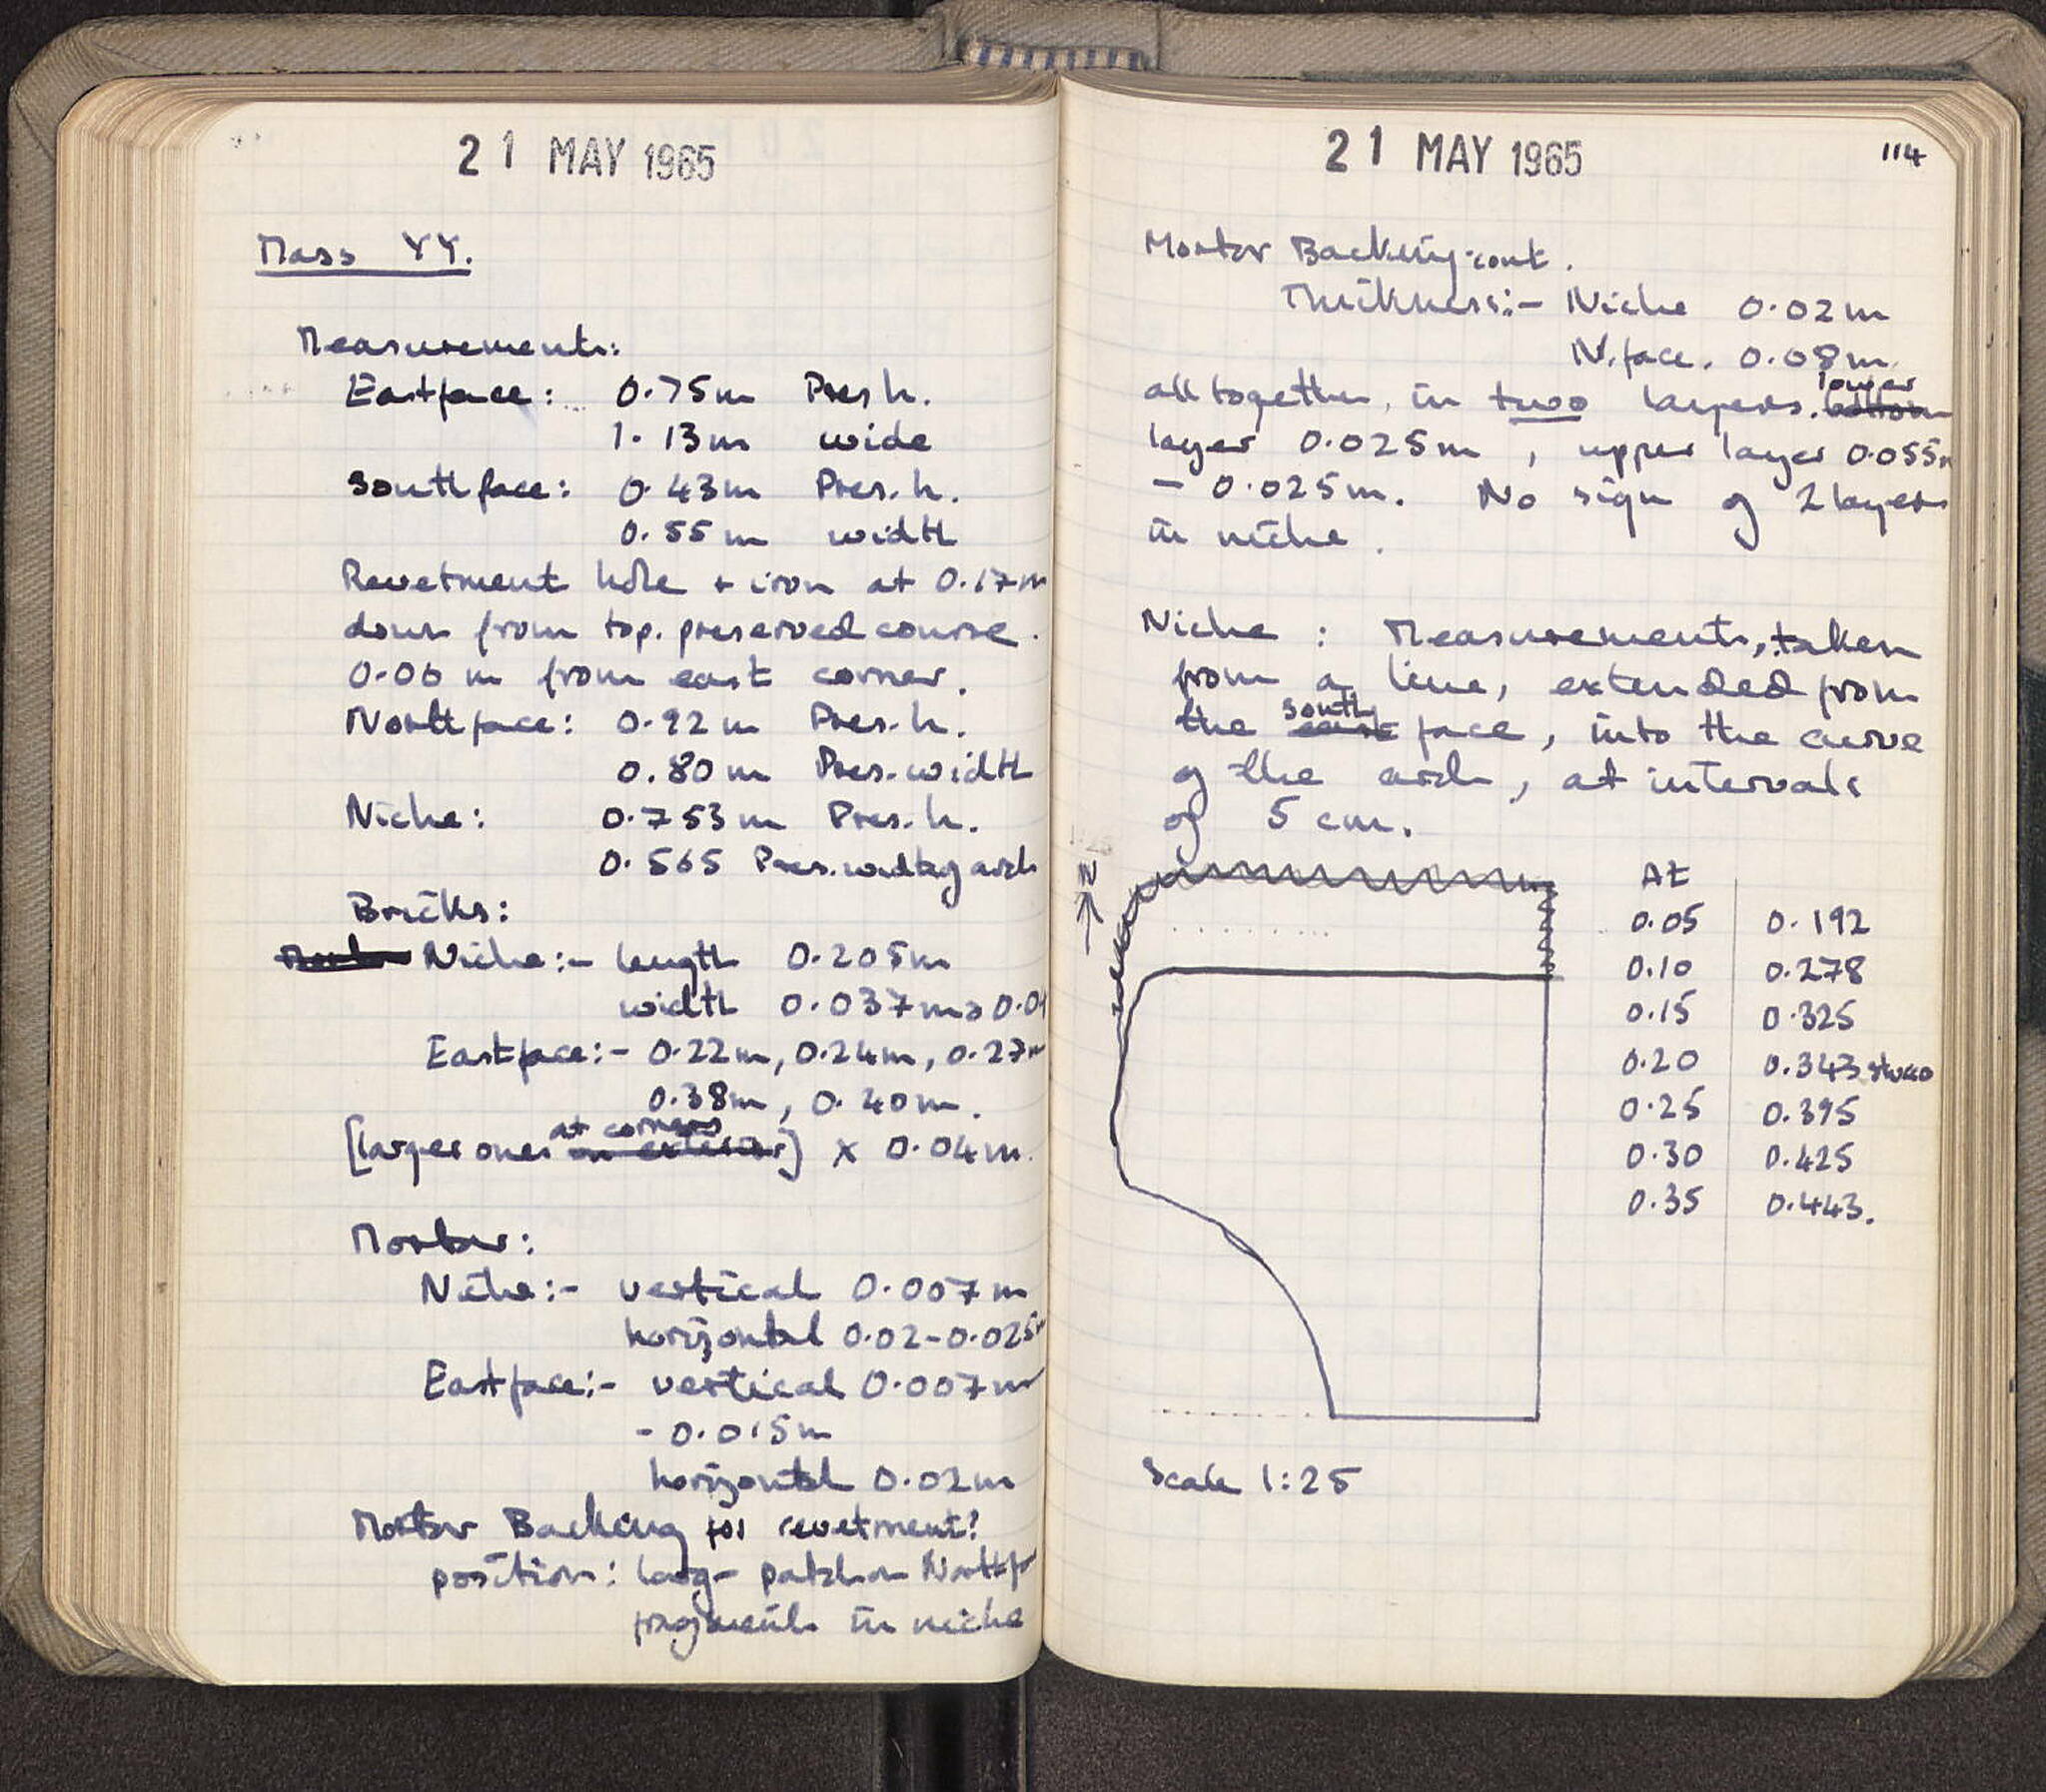 21 MAY 1965
Mass YY.
Measurements:
Eastface: 0.75m Pres h.
1.13m wide
Southface: 0.43m Pres. h.
0.55m width
Revetment hole + iron at 0.17m
down from top. preserved course.
0.06 m from east corner.
Northface: 0.92m Pres. h.
0.80m Pres. width
Niche: 0.753m Pres. h.
0.565 Pres. width of arch
Bricks:
Niche:- length 0.205m
width 0.037m > 0.04
Eastface:- 0.22m, 0.24m, 0.27m
0.38m, 0.40m.
at corners
[larger ones on exterior] x 0.04m.
Mortar:
Niche:- vertical 0.007m
horizontal 0.02-0.025m
Eastface:- vertical 0.007m
- 0.015m
horizontal 0.02m
Mortar Backing for revetment?
position: large patch on North face
fragments in niche
21 MAY 1965
114
Mortar Backing cont.
Thickness:- Niche 0.02m
N. face. 0.08m
lower
all together, in two layers. bottom
layer 0.025m, upper layer 0.055m
- 0.025m. No sign of 2 layers
in niche.
Niche: Measurements, taken
from a line, extended from
south
the east face, into the curve
of the arch, at intervals
of 5 cm.
N
At
0.05 0.192
0.10 0.278
0.15 0.325
0.20 0.343 stucco
0.25 0.395
0.30 0.425
0.35 0.443.
Scale 1:25